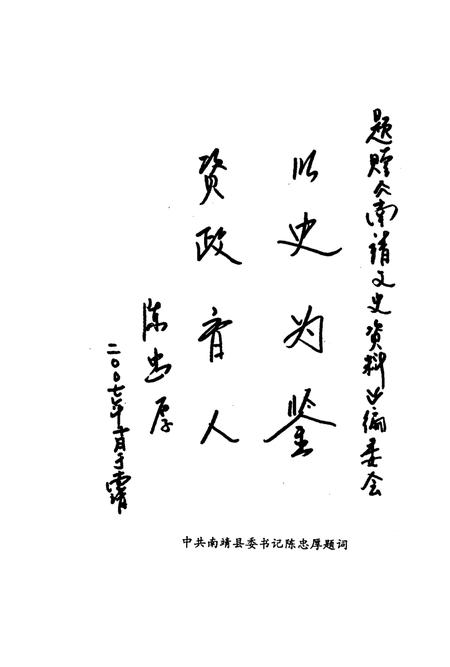 题赠《南靖文史资料》编委会
以史为鉴
资政育人
陈忠厚
二00七年十月于南靖
中共南靖县委书记陈忠厚题词